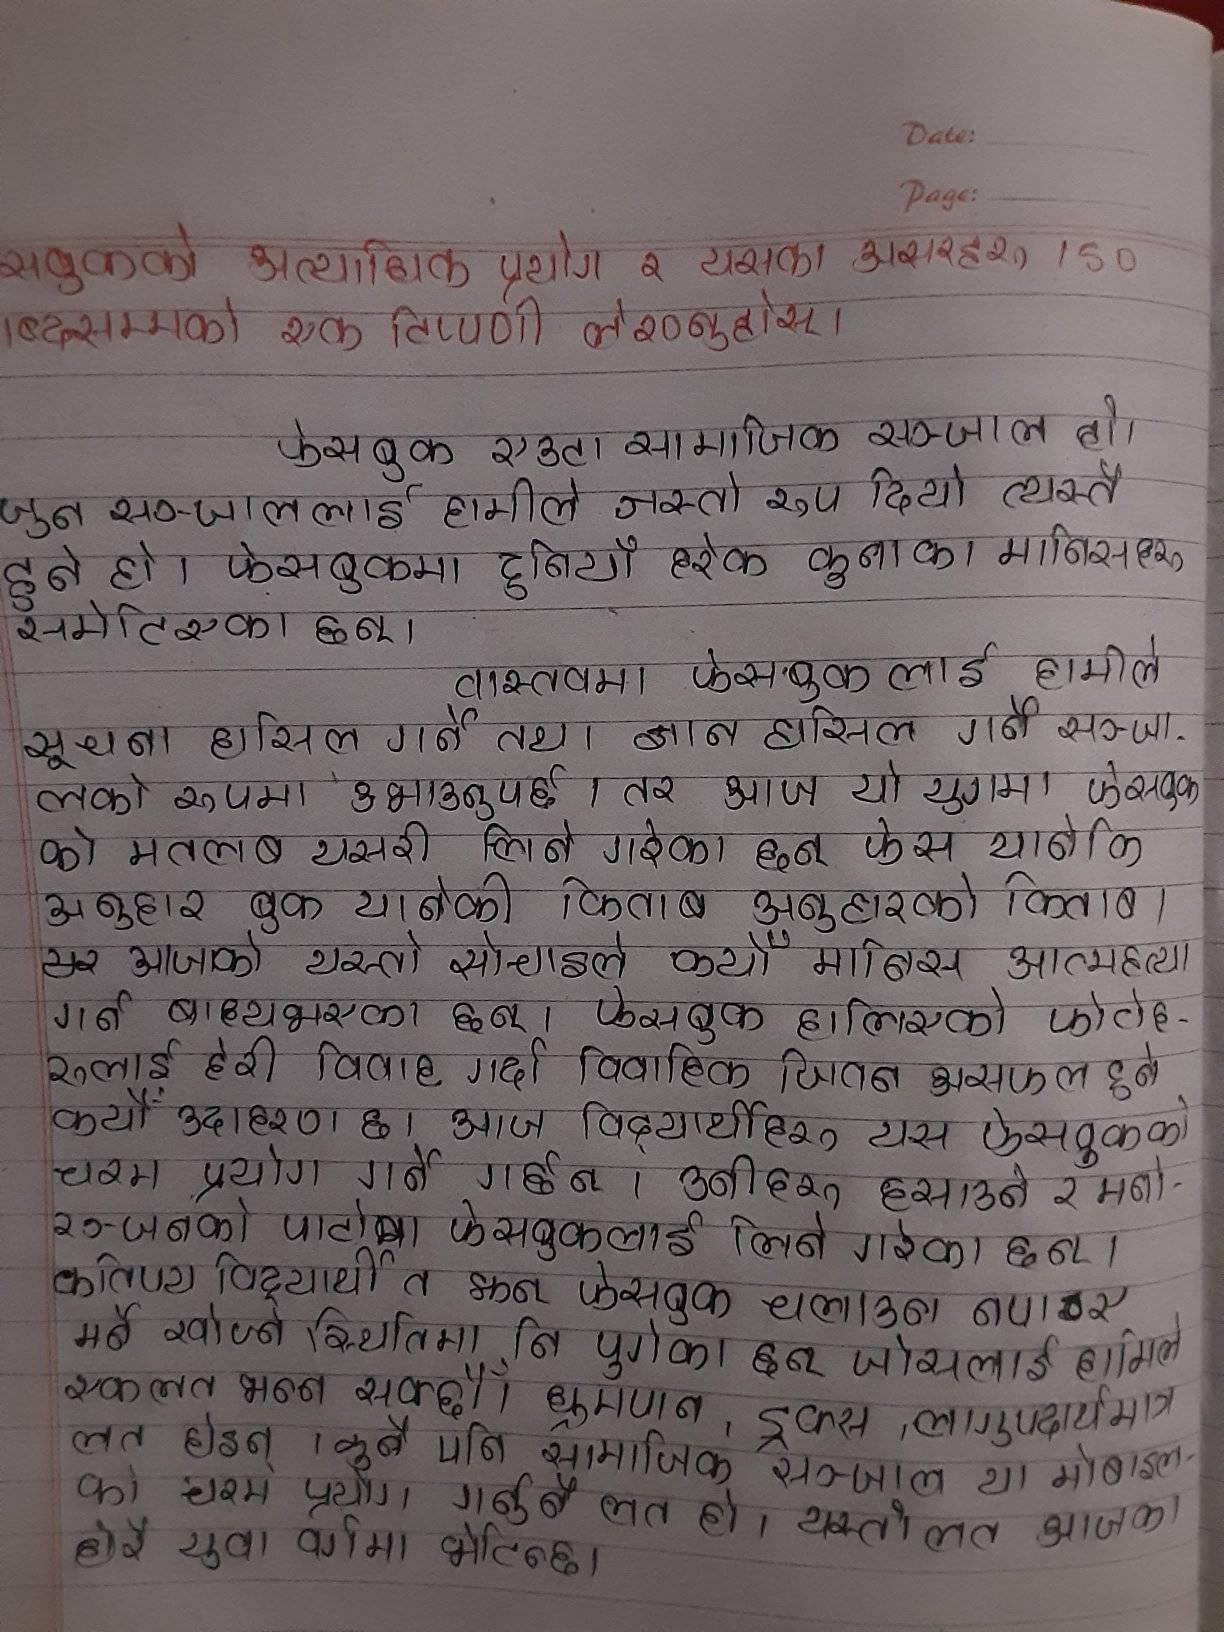 Date:
Page:
सबुकको अत्याधिक प्रयोग र यसका असरहरू 150
ब्दसम्मको एक टिप्पणी लेख्नुहोस्।
फेसबुक एउटा सामाजिक सञ्जाल हो।
जुन सञ्जाललाई हामीले जस्तो रूप दियो त्यस्तै
हुने हो। फेसबुकमा दुनियाँ हरेक कुनाका मानिसहरू
समेटिएका छन्।
वास्तवमा फेसबुकलाई हामीले
सूचना हासिल गर्ने तथा ज्ञान हासिल गर्ने सञ्जा-
लको रूपमा उभाउनुपर्छ। तर आज यो युगमा फेसबुक
को मतलब यसरी लिने गरेका छन् फेस यानेकि
अनुहार बुक यानेकी किताब अनुहारको किताब।
तर आजको यस्तो सोचाइले कयौँ मानिस आत्महत्या
गर्न बाध्यभएका छन्। फेसबुक हालिएको फोटोह-
रूलाई हेरी विवाह गर्दा विवाहिक जिवन असफल हुने
कयौँ उदाहरण छ। आज विद्यार्थीहरू यस फेसबुकको
चरम प्रयोग गर्ने गर्छन्। उनीहरू हसाउने र मनो-
रञ्जनको पाटोमा फेसबुकलाई लिने गरेका छन्।
कतिपय विद्यार्थी त झन् फेसबुक चलाउन नपाएर
मर्ने खोज्ने स्थितिमा नि पुगेका छन् जोसलाई हामिले
एकलत भन्न सक्छौँ। ध्रुमपान, ड्रक्स, लागुपदार्थमात्र
लत होइन्। कुनै पनि सामाजिक सञ्जाल या मोबाइल-
को चरम प्रयोग गर्नुनै लत हो। यस्तो लत आजका
होरै युवा वर्गमा भेटिन्छ।